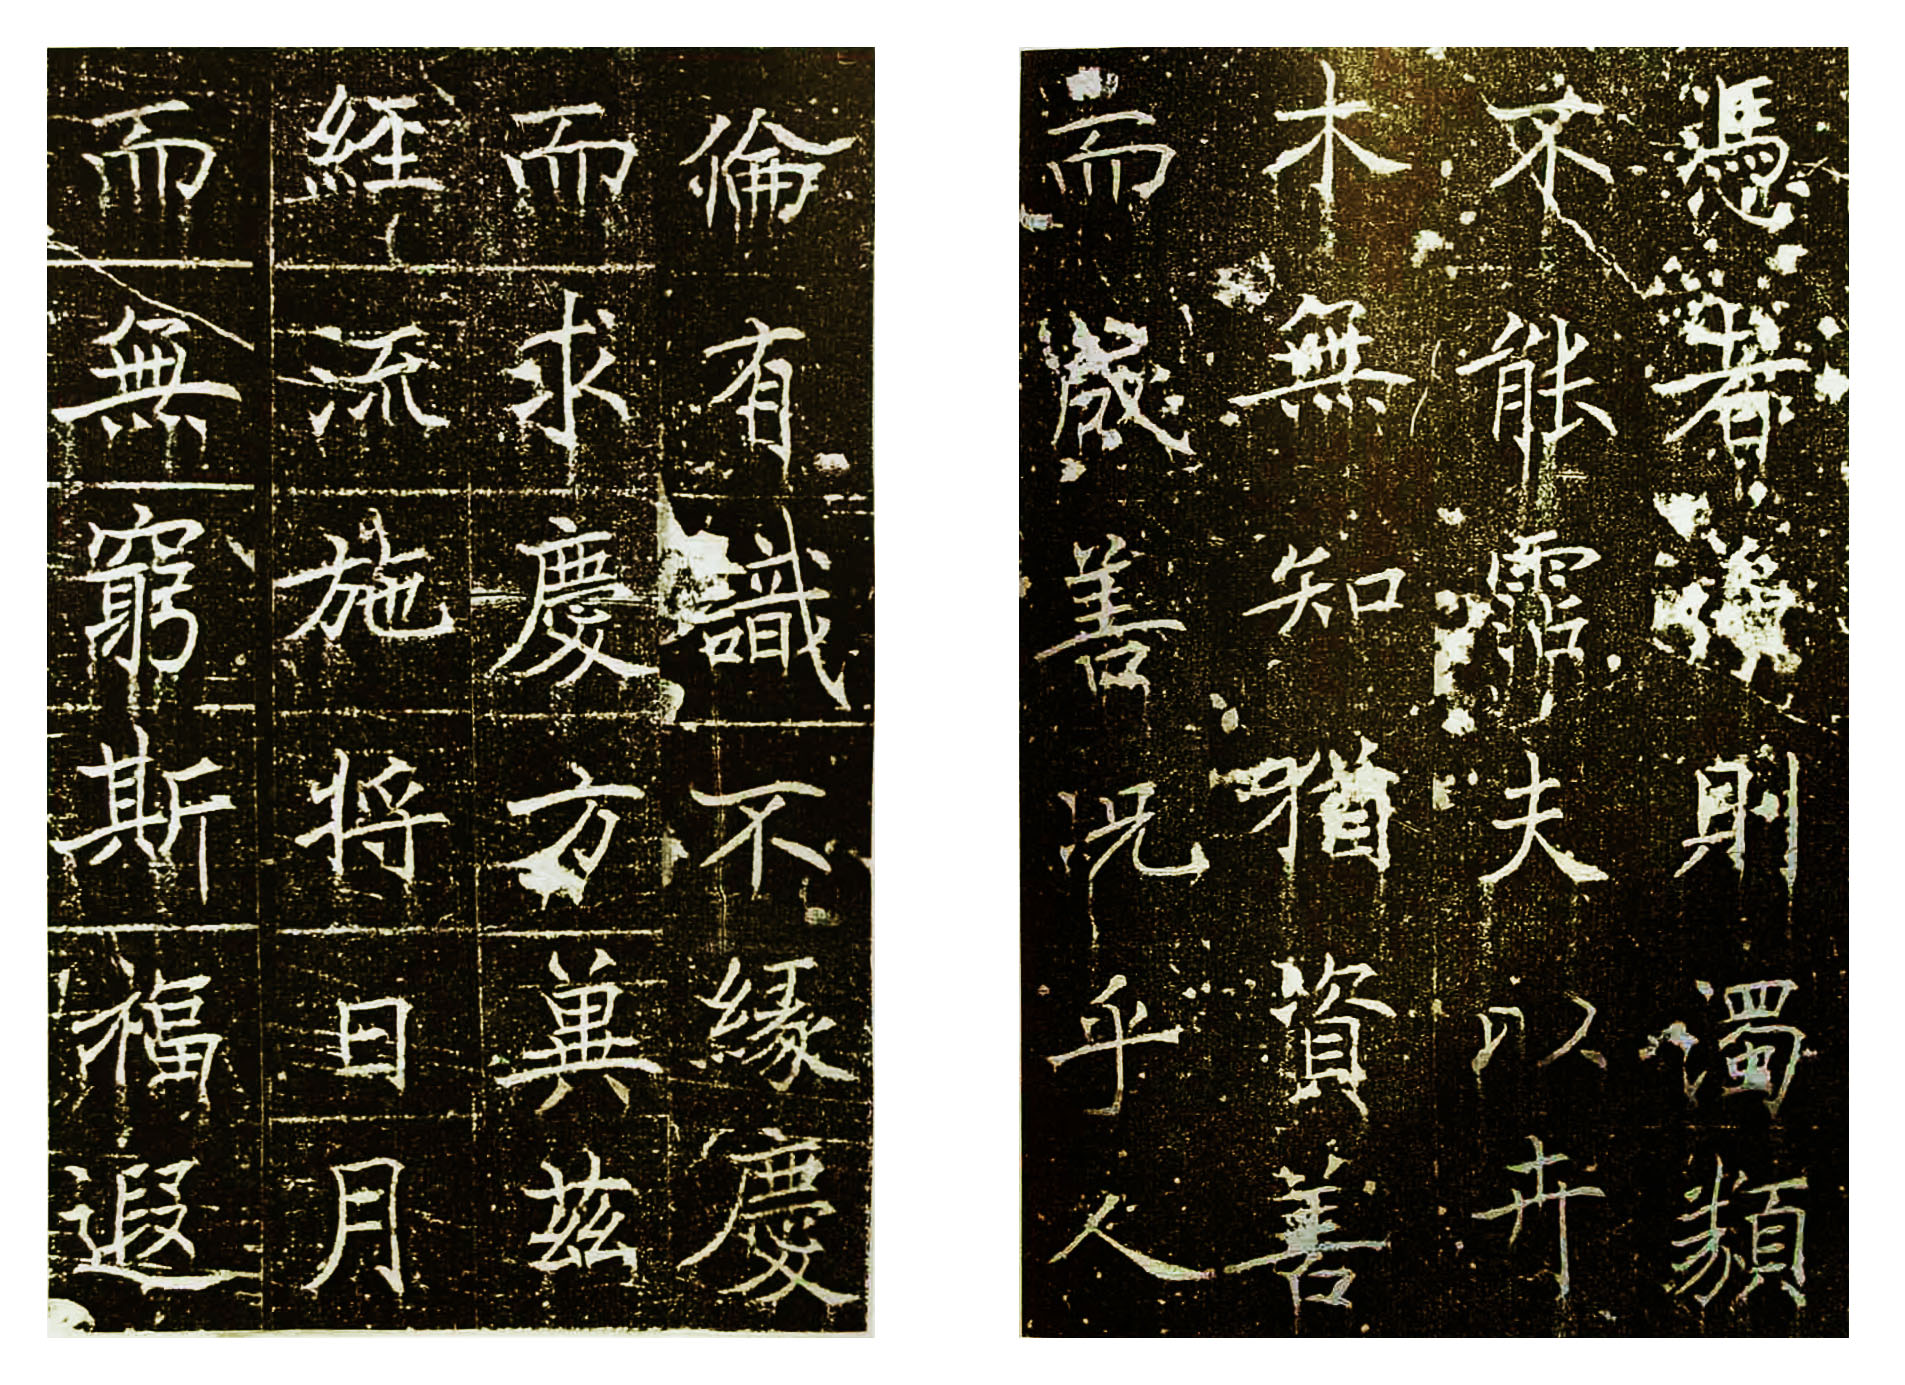 憑者淨則濁類
不能霑夫以卉
木無知猶資善
而成善況乎人
倫有識不緣慶
而求慶方冀茲
經流施将日月
而無窮斯福遐